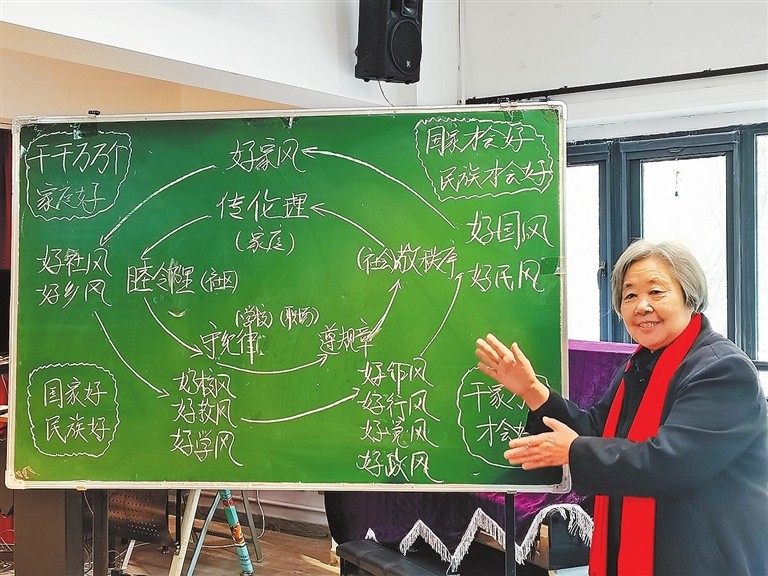 千千万万个
家庭好
好家风
国家才会好
民族才会好
传伦理
(家庭)
好国风
好民风
好社风
好乡风
睦邻里(社区)
(社会)敬秩序
(学校)
(职场)
守纪律
遵规章
国家好
民族好
好校风
好教风
好学风
好作风
好行风
好党风
好政风
千家万
才会好